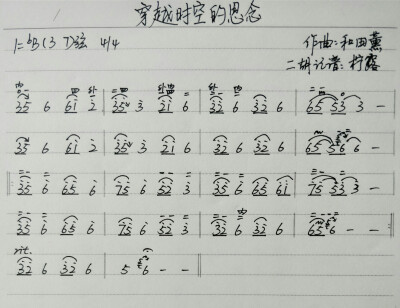 穿越时空的思念
1=♭B(3 7)弦 4/4
作曲:和田薰
二胡记谱:柠露
35 6 61 2 | 35 3 21 6 | 32 6 32 6 | 65 53 3 — |
35 6 61 2 | 35 3 21 6 | 32 6 32 6 | 65 56 6 — |
‖ 35 6 65 6 | 75 6 52 3 | 35 6 65 61 | 75 53 3 — |
35 6 65 6 | 75 6 52 3 | 32 6 32 6 | 65 6 — — |
rit.
32 6 32 6 | 5 6 — — ‖